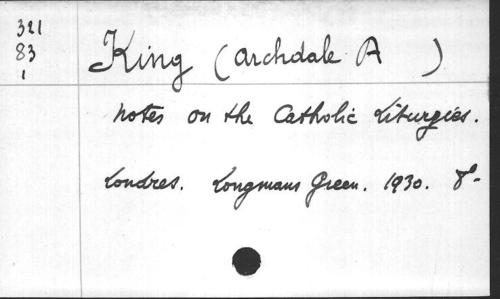 321
83
1
King (Archdale A )
Notes on the Catholic Liturgies.
Londres. Longmans Green. 1930. 8º-